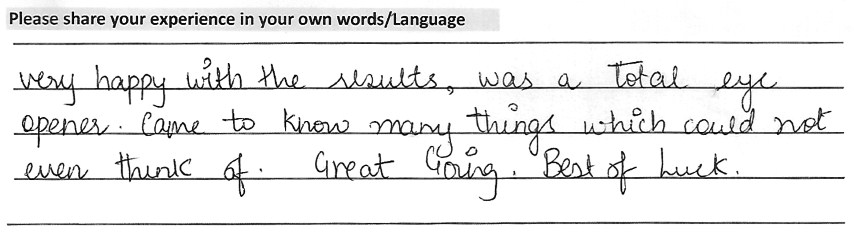 Please share your experience in your own words/Language
very happy with the results, was a total eye
opener. Came to know many things which could not
even think of. Great Going. Best of Luck.